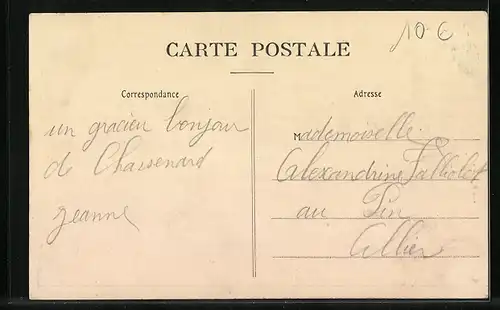 10-€
CARTE POSTALE
Correspondance
Adresse
un gracieu bonjour
de Chassenard
Jeanne
Mademoiselle
Alexandrine
au Pin
Allier